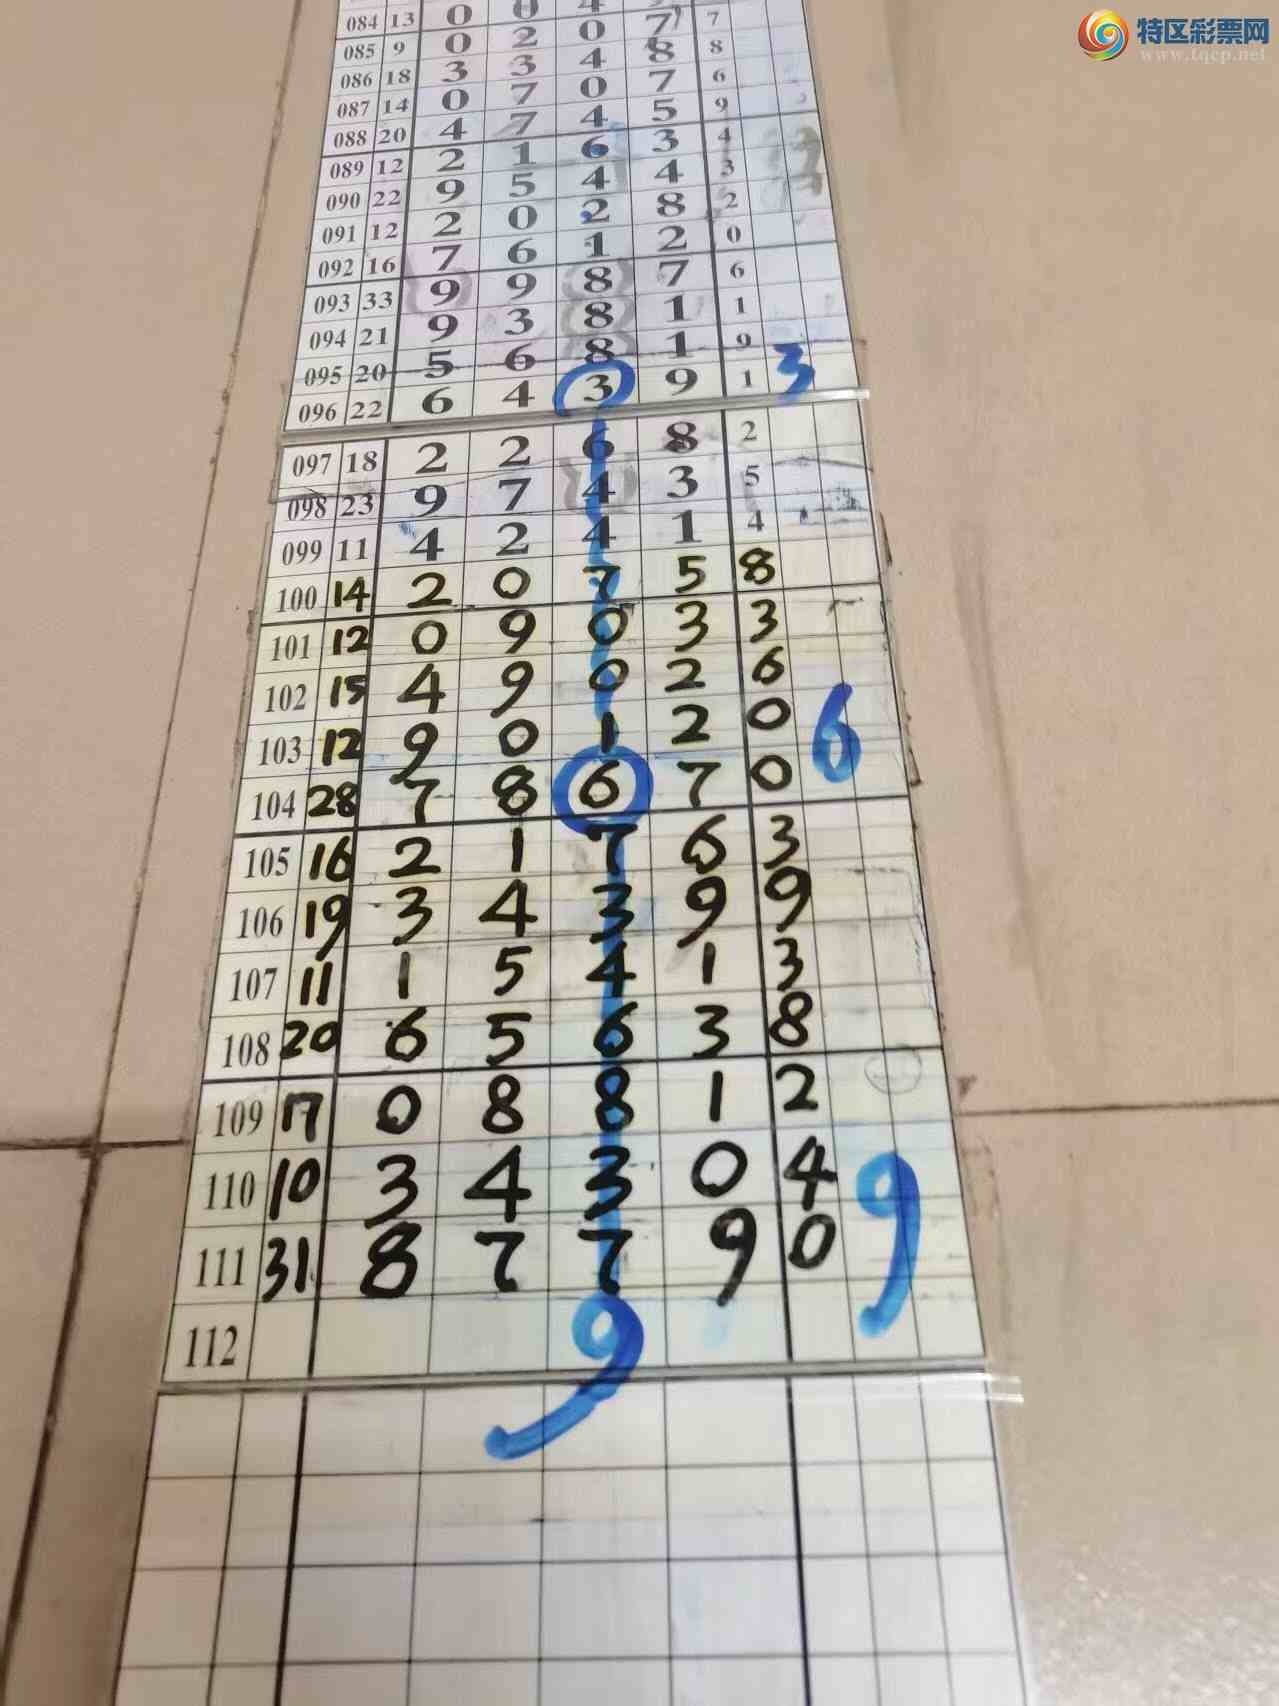 特区彩票网
www.tqcp.net
084 13 0 0 4 7 7
085 9 0 2 0 8 8
086 18 3 3 4 7 6
087 14 0 7 0 5 9
088 20 4 7 4 3 4
089 12 2 1 6 4 3
090 22 9 5 4 8 2
091 12 2 0 2 2 0
092 16 7 6 1 7 6
093 33 9 9 8 1 1
094 21 9 3 8 1 9
095 20 5 6 8 9 1 3
096 22 6 4 3
097 18 2 2 6 8 2
098 23 9 7 4 3 5
099 11 4 2 4 1 4
100 14 2 0 7 5 8
101 12 0 9 0 3 3
102 15 4 9 0 2 6
103 12 9 0 1 2 0 6
104 28 7 8 6 7 0
105 16 2 1 7 6 3
106 19 3 4 3 9 9
107 11 1 5 4 1 3
108 20 6 5 6 3 8
109 17 0 8 8 1 2
110 10 3 4 3 0 4 9
111 31 8 7 7 9 0
112 9